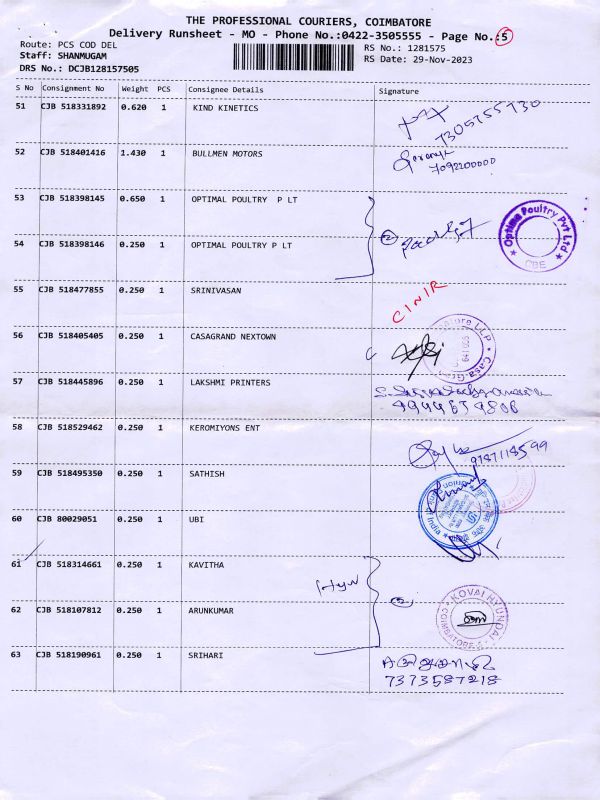 THE PROFESSIONAL COURIERS, COIMBATORE
Delivery Runsheet - MO - Phone No.:0422-3505555 - Page No.:5
Route: PCS COD DEL
RS No.: 1281575
Staff: SHANMUGAM
RS Date: 29-Nov-2023
DRS No.: DCJB128157505
S No Consignment No Weight PCS Consignee Details Signature
51 CJB 518331892 0.620 1 KIND KINETICS
7305755730
52 CJB 518401416 1.430 1 BULLMEN MOTORS
7092100000
53 CJB 518398145 0.650 1 OPTIMAL POULTRY P LT
Optima Poultry Pvt Ltd
CBE
2
54 CJB 518398146 0.250 1 OPTIMAL POULTRY P LT
55 CJB 518477855 0.250 1 SRINIVASAN
CINIR
56 CJB 518405405 0.250 1 CASAGRAND NEXTOWN
LLP * Casa
57 CJB 518445896 0.250 1 LAKSHMI PRINTERS
58 CJB 518529462 0.250 1 KEROMIYONS ENT
9787118599
59 CJB 518495350 0.250 1 SATHISH
60 CJB 80029051 0.250 1 UBI
India
61 CJB 518314661 0.250 1 KAVITHA
Hyn
2
62 CJB 518107812 0.250 1 ARUNKUMAR
KOVAI HYUNDAI
COIMBATORE
63 CJB 518190961 0.250 1 SRIHARI
7373587218